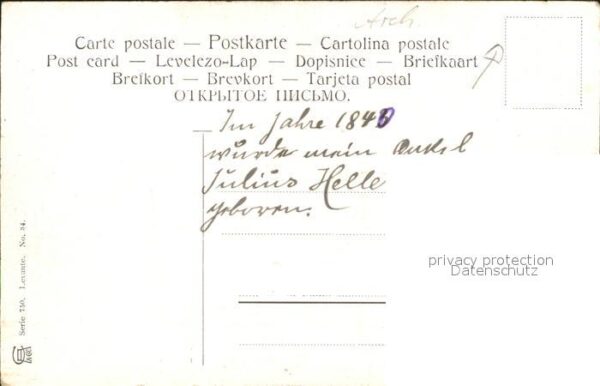 Arch.
Carte postale — Postkarte — Cartolina postale
Post card — Levelezo-Lap — Dopisnice — Briefkaart
Brefkort — Brevkort — Tarjeta postal
ОТКРЫТОЕ ПИСЬМО.
Im Jahre 1840
wurde mein Onkel
Julius Helle
geboren.
privacy protection
Datenschutz
Serie 750. Levante. No. 34.